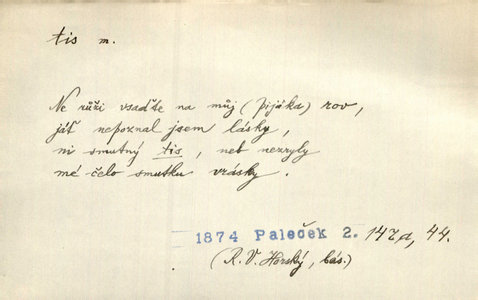 tis m.
Ne růži vsaďte na můj (pijáka) rov,
jáť nepoznal jsem lásky,
ni smutný tis, neb nezryly
mé čelo smutku vrásky.
1874 Paleček 2. 147d, 44.
(R. V. Horský, bás.)